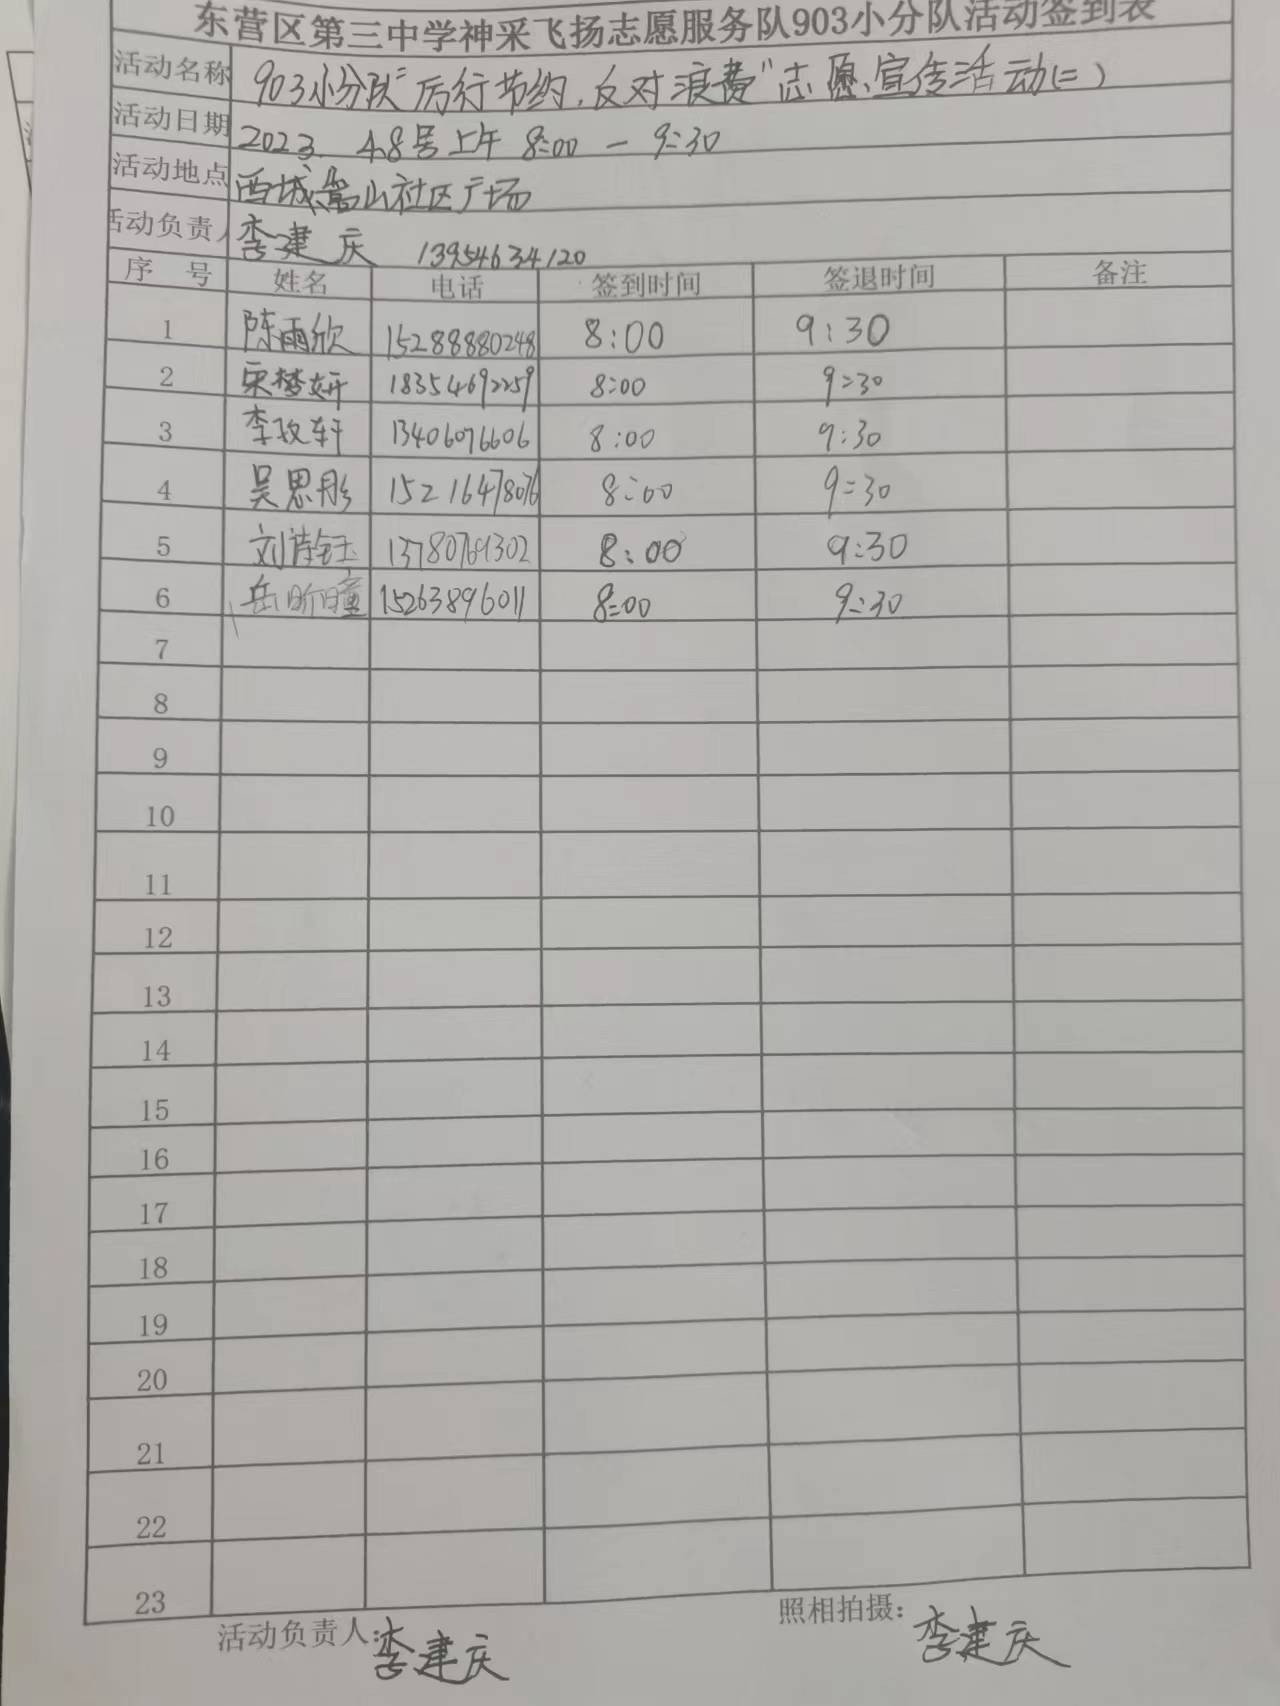 东营区第三中学神采飞扬志愿服务队903小分队活动签到表
活动名称 903小分队"厉行节约,反对浪费"志愿宣传活动(二)
活动日期 2023. 4.8号上午 8:00 — 9:30
活动地点 西城嵩山社区广场
活动负责人 李建庆 13954634120
序 号 姓名 电话 签到时间 签退时间 备注
1 陈雨欣 15288880248 8:00 9:30
2 宋梦妍 18354692259 8:00 9:30
3 李玫轩 13406076606 8:00 9:30
4 吴思彤 15216478076 8:00 9:30
5 刘诗钰 13780769302 8:00 9:30
6 岳昕瞳 15263896011 8:00 9:30
7
8
9
10
11
12
13
14
15
16
17
18
19
20
21
22
23
活动负责人:李建庆 照相拍摄:李建庆